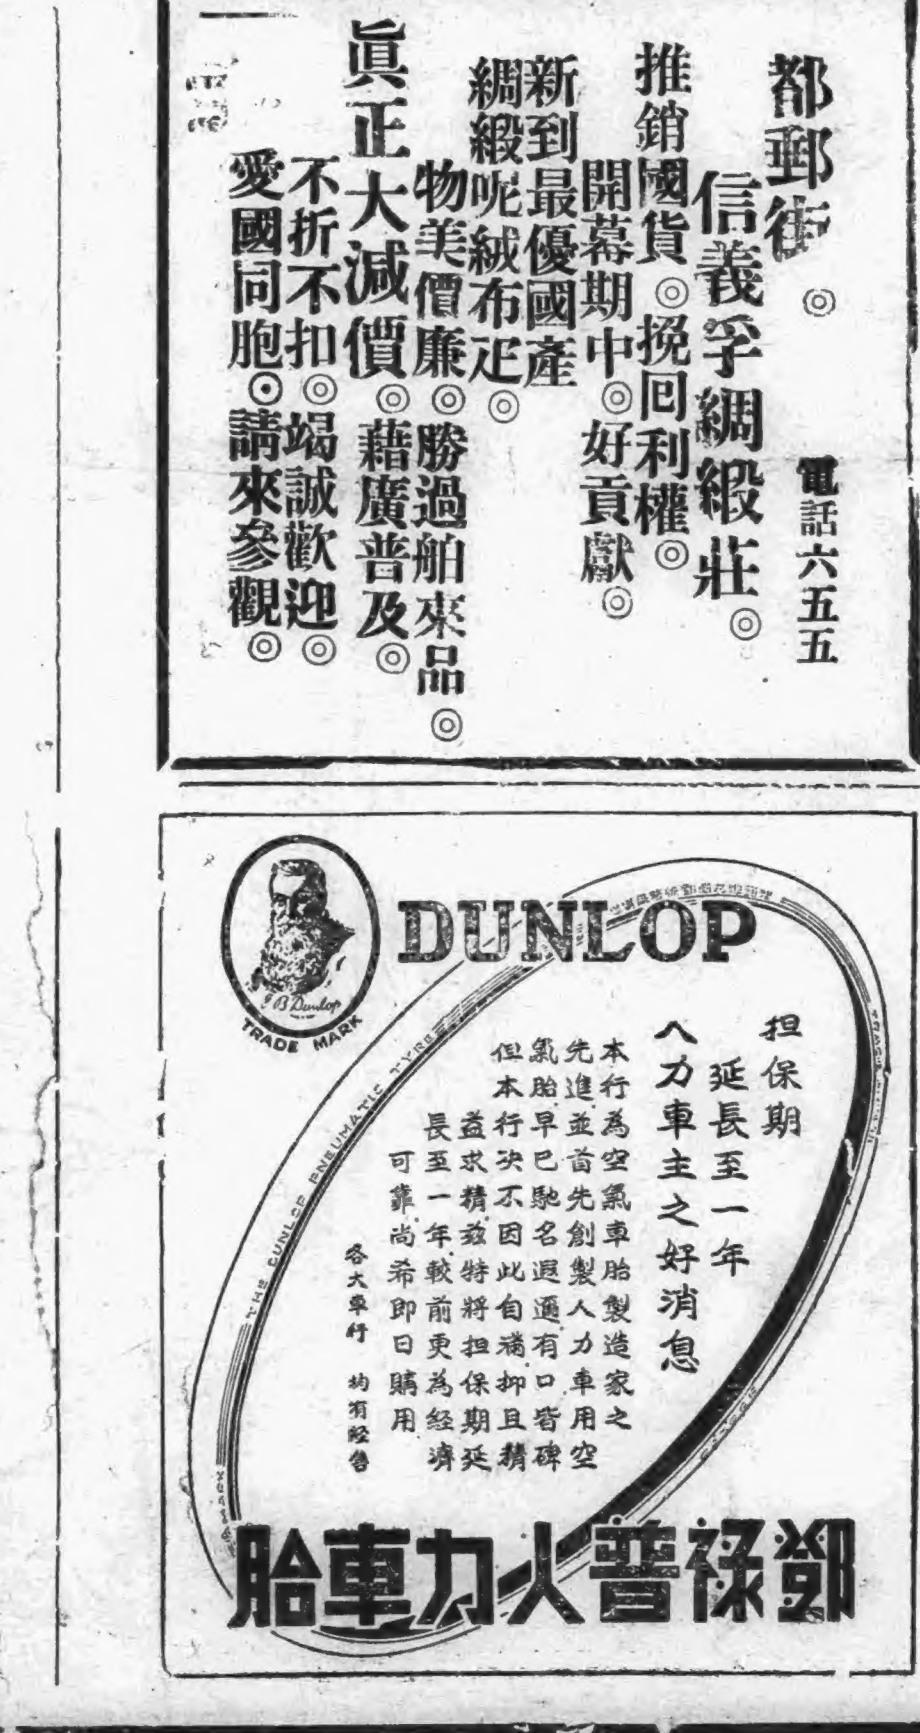 都郵街◎
電話六五五
信義孚綢緞莊◎
推銷國貨◎挽回利權◎
開幕期中◎好貢獻◎
新到最優國產
綢緞呢絨布疋◎
物美價廉◎勝過舶來品◎
眞正大減價◎藉廣普及◎
不折不扣◎竭誠歡迎◎
愛國同胞◎請來參觀◎
DUNLOP
J B Dunlop
TRADE MARK
THE DUNLOP PNEUMATIC TYRE
担保期
延長至一年
人力車主之好消息
本行為空氣車胎製造家之
先進並首先創製人力車用空
氣胎早已馳名遐邇有口皆碑
但本行決不因此自滿抑且精
益求精茲特將担保期延
長至一年較前更為經濟
可靠尚希即日購用
各大車行 均有經售
鄧祿普人力車胎